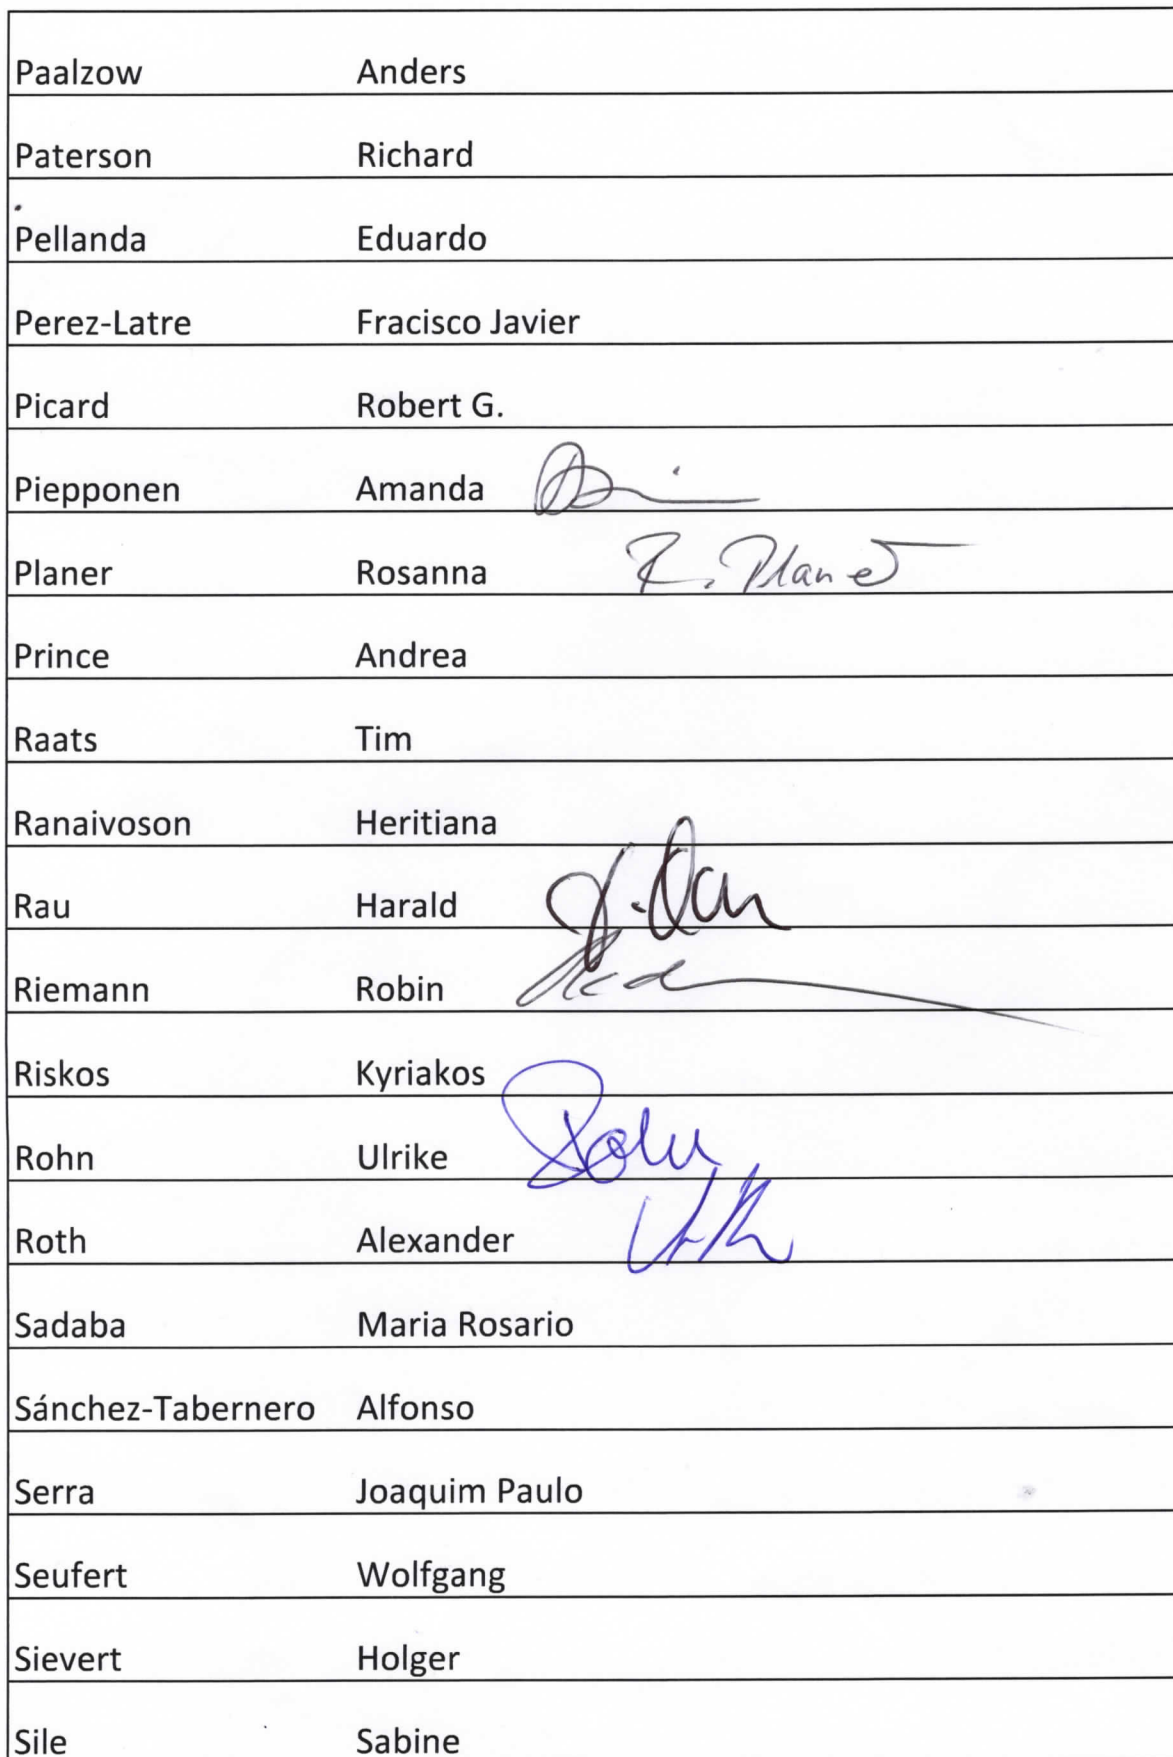 Paalzow Anders
Paterson Richard
Pellanda Eduardo
Perez-Latre Fracisco Javier
Picard Robert G.
Piepponen Amanda
Planer Rosanna R. Planer
Prince Andrea
Raats Tim
Ranaivoson Heritiana
Rau Harald
Riemann Robin
Riskos Kyriakos
Rohn Ulrike Rohn
Roth Alexander
Sadaba Maria Rosario
Sánchez-Tabernero Alfonso
Serra Joaquim Paulo
Seufert Wolfgang
Sievert Holger
Sile Sabine